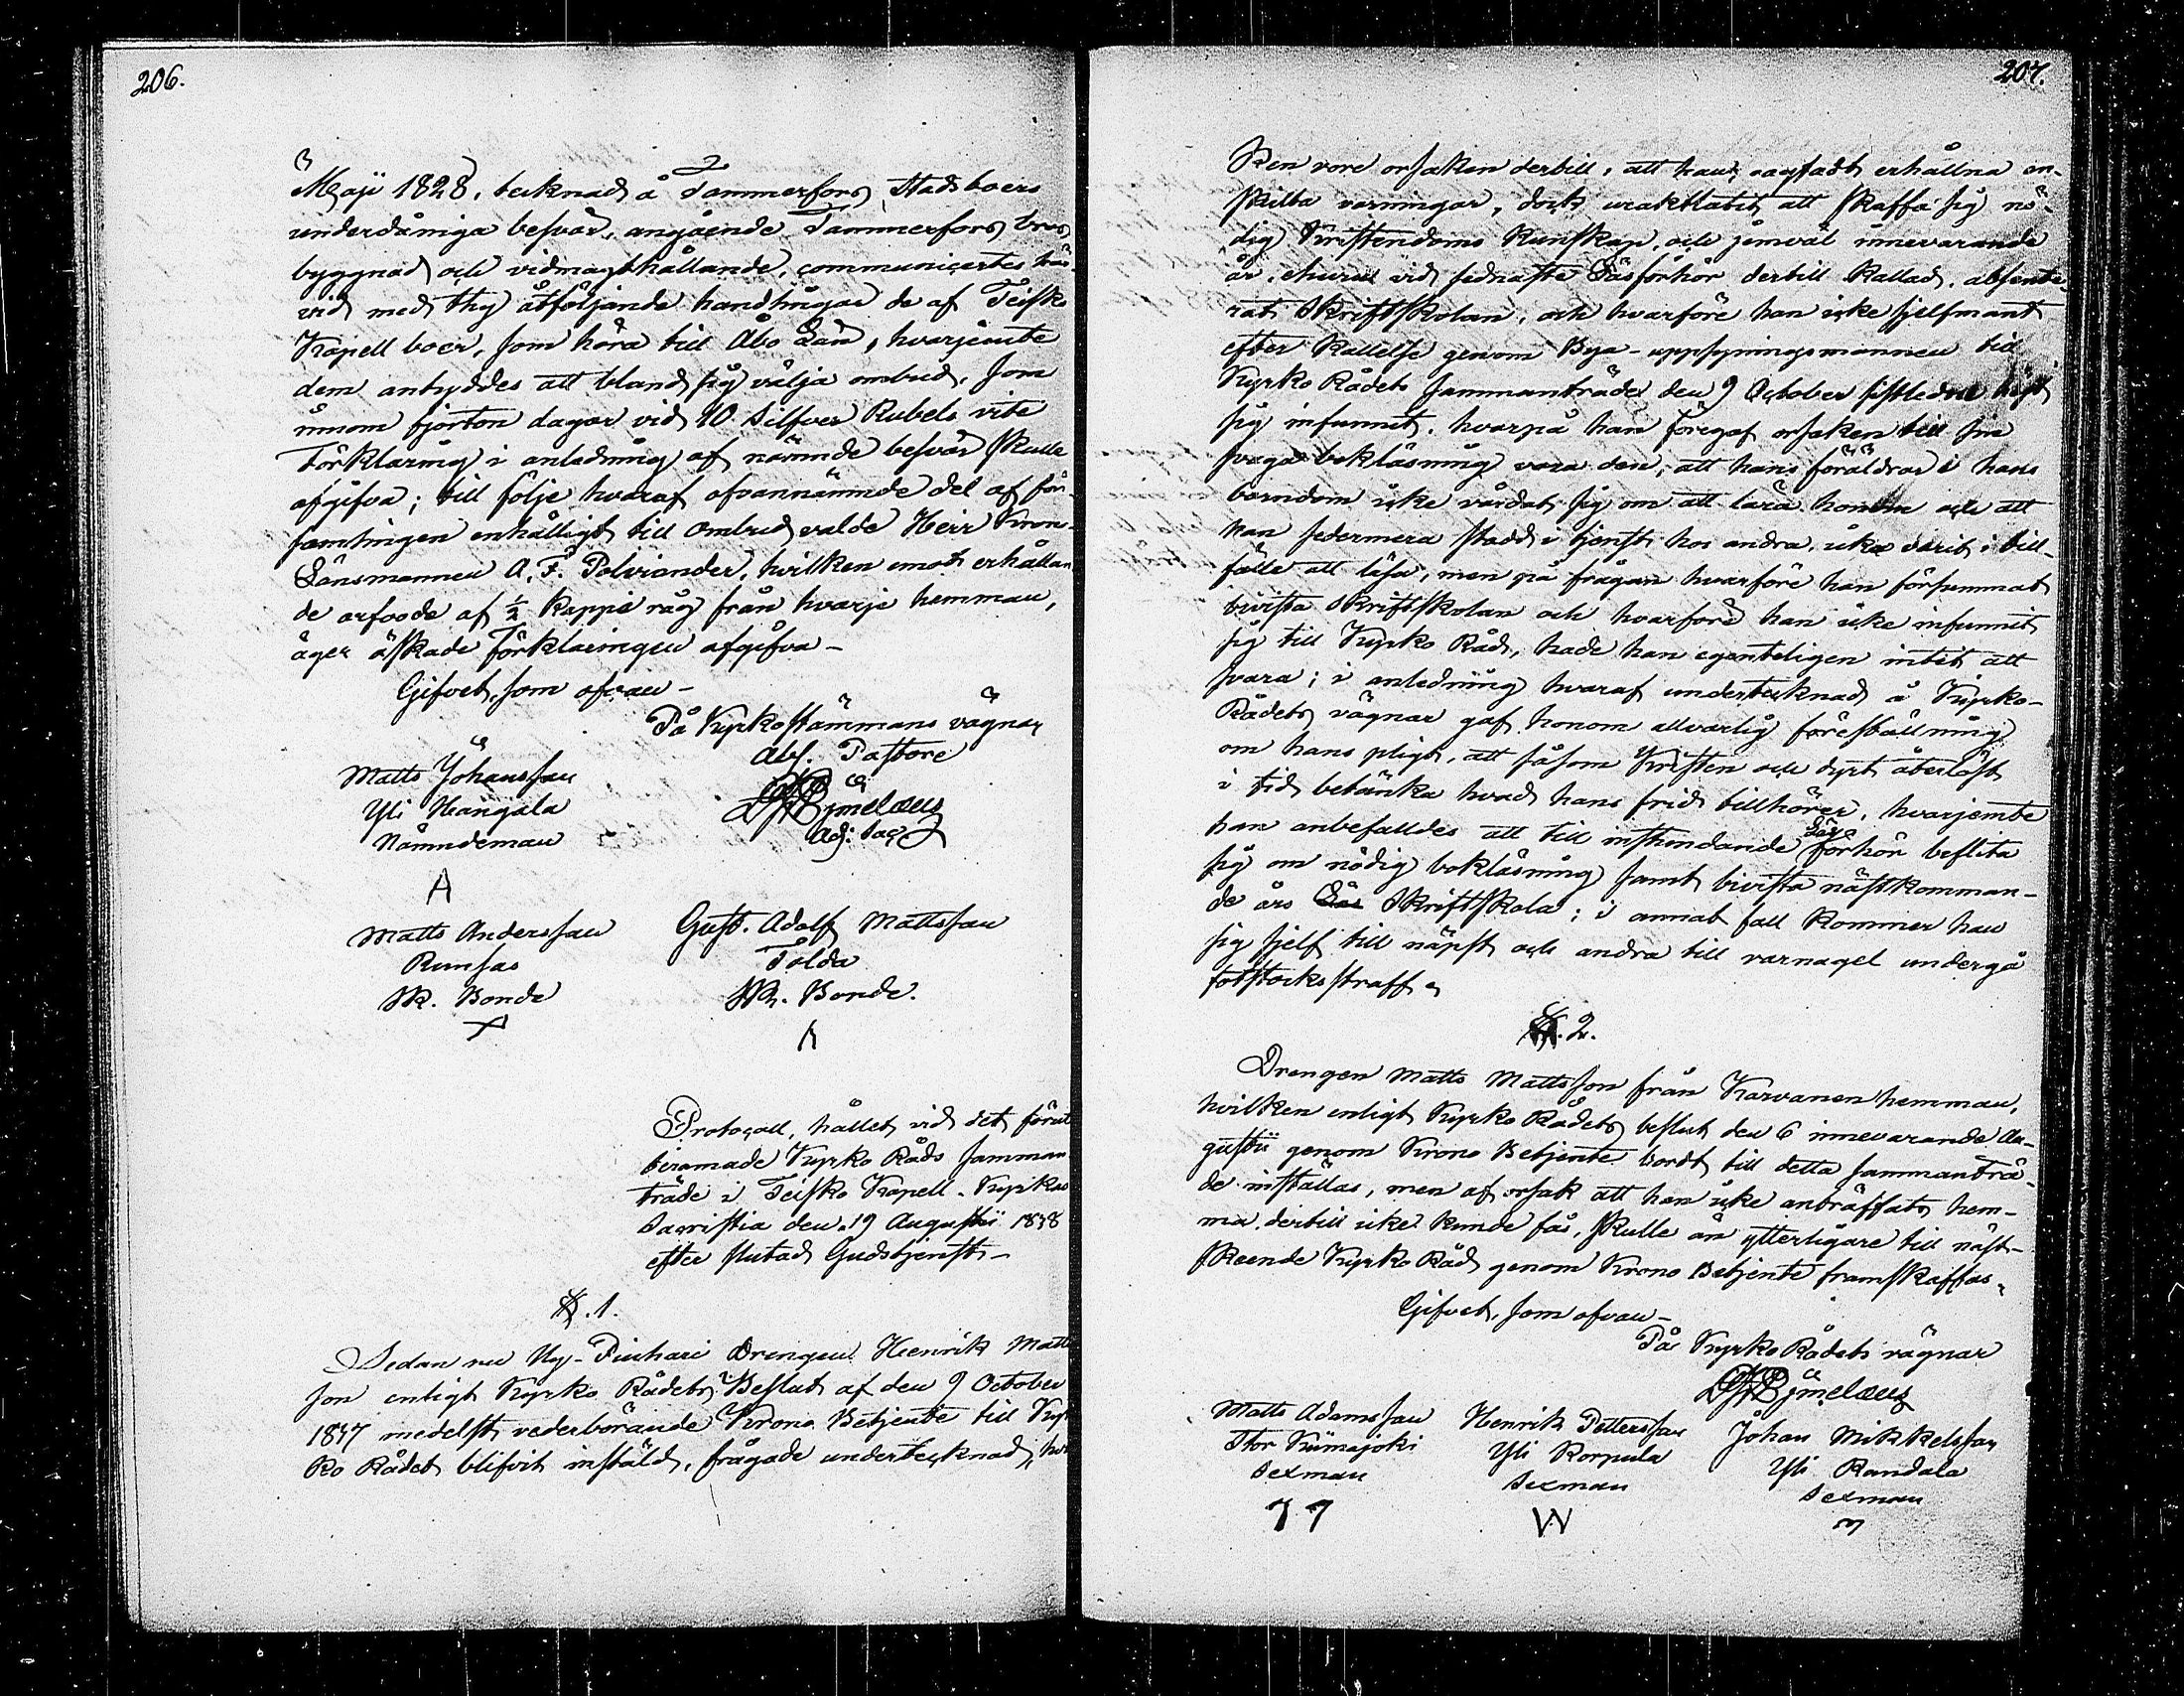 206.
Maji 1828, tecknad å Tammerfors Stadsboers
underdåniga besvär, angående Tammerfors bros
byggnad och vidmagthållande, communicertes här-
vid med thy åtföljande handlingar de af Teisko
Kapell boer, som höra till Åbo Län, hvarjemte
dem antyddes att bland sig välja ombud, som
innom fjorton dagar vid 10 Silfver Rubels vite
Förklaring i anledning af nämnde besvär skulle
afgifva; till följe hvaraf ofvannämnde del af för-
samlingen enhälligt till Ombud valde Herr Krono-
Länsmannen A. F. Polviander, hvilken emot erhållan-
de arfvode af ½ Kappe råg från hvarje hemman,
äger äskade Förklaringen afgifva –
Gifvet, som ofvan –
På Kyrkostämmans vägnar
Abs. Pastore
Matts Johansson
Yli Hangala
Nämndeman
Adj: Sac:
A
Matts Andersson
Runsas
Sk. Bonde
X
Gust. Adolf Mattsson
Tolda
Sk. Bonde.
Protocoll, hållet vid det förut
beramade Kyrko Råds samman
träde i Teisko Kapell-Kyrkas
Sacristia den 19 Augustii 1838
efter slutad Gudstjenst –
§. 1.
Sedan nu Ny-Pinhari Drengen Henrik Matts
son enligt Kyrko Rådets Beslut af den 9 October
1837 medelst vederbörande Krono Betjente till Kyr
ko Rådet blifvit instäld, frågade undertecknad, hvil
207.
ken vore orsaken dertill, att han, oagtadt erhållna en-
skilta varningar, dock uraktlåtit att skaffa sig nö-
dig Kristendoms Kunskap, och jemväl innevarande
år, ehuru vid sednaste Läsförhör dertill kallad, absente-
rat Skriftskolan, och hvarföre han icke sjelfmant
efter kallelse genom Bya-uppsyningsmannen till
Kyrko Rådets sammanträde den 9 October sistledne höst
sig infunnit, hvarpå han föregaf orsaken till sin
svaga bokläsning vara den, att hans föräldrar i hans
barndom icke vårdat sig om att lära honom och att
han sedermera stadd i tjenst hos andra, icke varit i till-
fälle att läsa, men på frågan hvarföre han försummat
bivista Skriftskolan och hvarföre han icke infunnit
sig till Kyrko Råd, hade han egenteligen intet att
svara; i anledning hvaraf undertecknad å Kyrko-
Rådets vägnar gaf honom allvarlig föreställning
om hans pligt, att såsom Kristen och dyrt återlöst
i tid betänka hvad hans frid tillhörer, hvarjemte
han anbefalldes att till instundande Läsförhör beflita
sig om nödig bokläsning samt bivista nästkomman-
de års Läs Skriftskola; i annat fall kommer han
sig sjelf till näpst och andra till varnagel undergå
fotstocksstraff.
§. 2.
Drengen Matts Mattsson från Karvanen hemman,
hvilken enligt Kyrko Rådets beslut den 6 innevarande Au-
gustii genom Krono Betjente bordt till detta sammanträ-
de inställas, men af orsak att han icke anträffats hem-
ma, dertill icke kunde fås, skulle än ytterligare till näst-
skeende Kyrko Råd genom Krono Betjente framskaffas.
Gifvet, som ofvan –
På Kyrko Rådets vägnar
Matts Adamsson
Stor Kiimajoki
Sexman
77
Henrik Pettersson
Yli Korpula
Sexman
W
Johan Mikkelsson
Yli Randala
Sexman